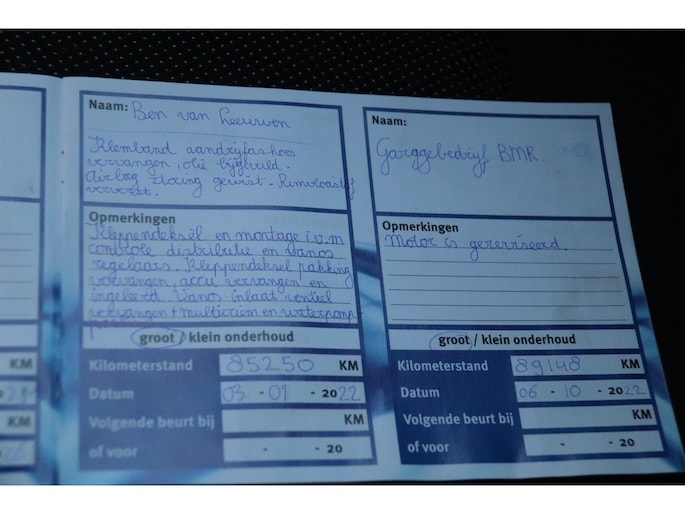 Naam: Ben van Leeuwen
Klemband aandrijfashoes
vervangen, olie bijgevuld.
Airbag storing gewist. Remvloeistof
ververst.
Opmerkingen
Kleppendeksel en montage i.v.m
controle distributie en vanos
regelaars. Kleppendeksel pakking
vervangen, accu vervangen en
ingeleerd. Vanos-inlaat ventiel
vervangen + multiriem en waterpomp
groot / klein onderhoud
Kilometerstand 85250 KM
Datum 03 - 01 - 2022
Volgende beurt bij KM
of voor - - 20
Naam:
Garagebedrijf BMR
Opmerkingen
Motor is gereviseerd.
groot / klein onderhoud
Kilometerstand 89148 KM
Datum 06 - 10 - 2022
Volgende beurt bij KM
of voor - - 20
KM
KM